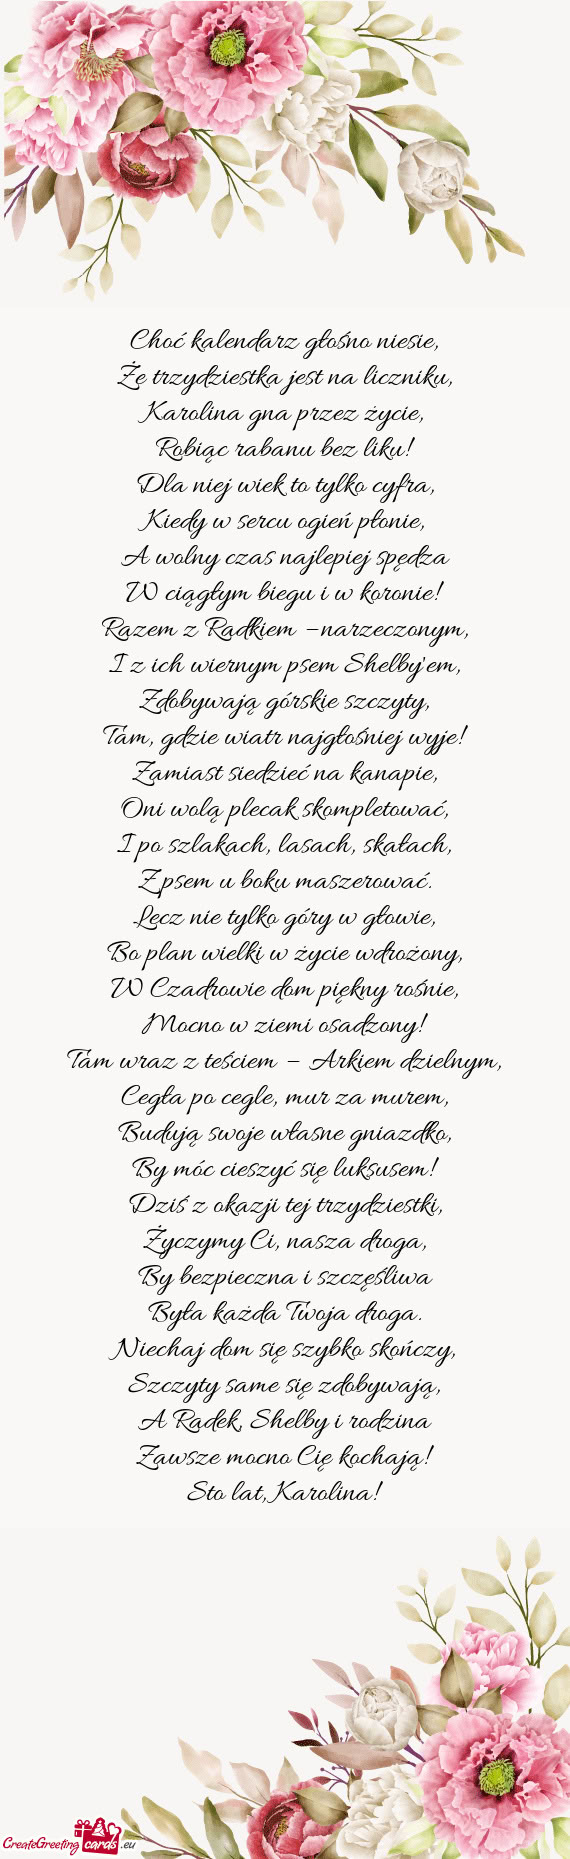 Choć kalendarz głośno niesie,
Że trzydziestka jest na liczniku,
Karolina gna przez życie,
Robiąc rabanu bez liku!
Dla niej wiek to tylko cyfra,
Kiedy w sercu ogień płonie,
A wolny czas najlepiej spędza
W ciągłym biegu i w koronie!
Razem z Radkiem –narzeczonym,
I z ich wiernym psem Shelby'em,
Zdobywają górskie szczyty,
Tam, gdzie wiatr najgłośniej wyje!
Zamiast siedzieć na kanapie,
Oni wolą plecak skompletować,
I po szlakach, lasach, skałach,
Z psem u boku maszerować.
Lecz nie tylko góry w głowie,
Bo plan wielki w życie wdrożony,
W Czadrowie dom piękny rośnie,
Mocno w ziemi osadzony!
Tam wraz z teściem – Arkiem dzielnym,
Cegła po cegle, mur za murem,
Budują swoje własne gniazdko,
By móc cieszyć się luksusem!
Dziś z okazji tej trzydziestki,
Życzymy Ci, nasza droga,
By bezpieczna i szczęśliwa
Była każda Twoja droga.
Niechaj dom się szybko skończy,
Szczyty same się zdobywają,
A Radek, Shelby i rodzina
Zawsze mocno Cię kochają!
Sto lat, Karolina!
CreateGreeting cards .eu